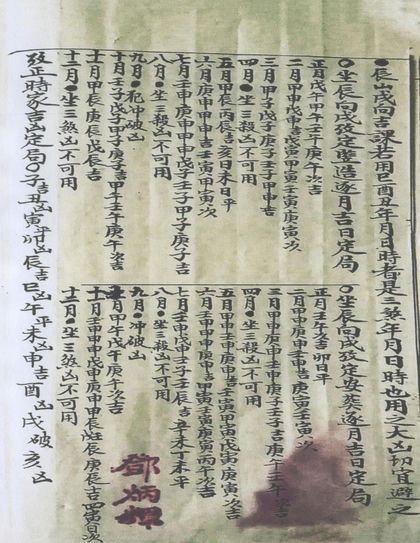 ●辰山戌向吉課若用巳酉丑年月日時者是三煞年月日時也用之大凶切宜避之
○坐辰向戌攷定豎造逐月吉日定局
正月戊午甲午壬午庚午次吉
二月甲申戊申吉戊寅甲寅壬寅庚寅次
三月甲子戊子庚子壬子甲申吉
四月●坐三殺凶不可用
五月甲辰丙辰吉亥日未日平
六月庚申甲申吉壬寅甲寅次
七月壬申庚申甲申戊子壬子甲子庚子吉
八月●坐三殺凶不可用
九月●犯冲破凶
十月壬子戊子甲子庚子吉甲午壬午庚午次吉
十一月甲辰庚辰戊辰壬辰吉
十二月●坐三煞凶不可用
○坐辰向戌攷定安葬逐月吉日定局
正月壬午次吉卯日平
二月甲申庚申壬申吉庚寅壬寅次
三月壬申甲申庚申壬子吉庚午壬午
四月●坐三殺凶不可用
五月甲申庚申吉壬寅甲寅戊寅庚寅次吉
六月甲申庚申吉甲寅壬寅庚寅丙午次吉
七月壬申戊申壬子壬辰吉丑未日平
八月●坐三殺凶不可用
九月●冲破凶
十月甲午戊午庚午次吉
十一月壬申甲申庚申甲辰壬辰庚辰吉四寅日次
十二月●坐三煞凶不可用
攷正時家吉凶定局○子吉丑凶寅平卯凶辰吉巳凶午平未凶申吉酉凶戌破亥凶
鄧炳輝